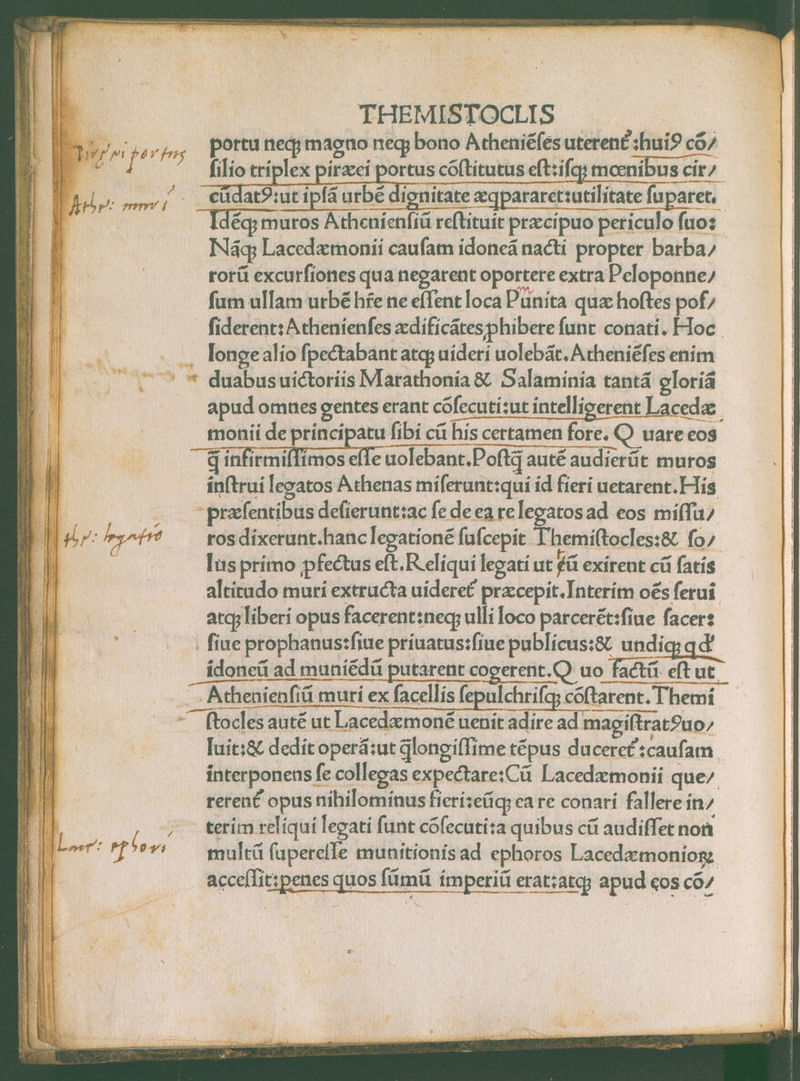 THEMISTOCLIS
portu neqꝫ magno neqꝫ bono Atheniẽſes uterent᷑:hui⁹ cõ/
ſilio triplex piræei portus cõſtitutus eſt:iſqꝫ mœnibus cir/
cũdat⁹:ut ipſã urbẽ dignitate æqpararet:utilitate ſuparet.
Idẽqꝫ muros Athenienſiũ reſtituit præcipuo periculo ſuo:
Nãqꝫ Lacedæmonii cauſam idoneã nacti propter barba/
rorũ excurſiones qua negarent oportere extra Peloponne/
ſum ullam urbẽ hr̃e ne eſſent loca Punita quæ hoſtes poſ/
ſiderent:Athenienſes ædificãtes ꝓhibere ſunt conati. Hoc
longe alio ſpectabant atqꝫ uideri uolebãt.Atheniẽſes enim
duabus uictoriis Marathonia & Salaminia tantã gloriã
apud omnes gentes erant cõſecuti:ut intelligerent Lacedæ
monii de principatu ſibi cũ his certamen fore. Q uare eos
q̃ infirmiſſimos eſſe uolebant.Poſtq̃ autẽ audierũt muros
inſtrui legatos Athenas miſerunt:qui id fieri uetarent.His
præſentibus deſierunt:ac ſe de ea re legatos ad eos miſſu/
ros dixerunt.hanc legationẽ ſuſcepit Themiſtocles:& ſo/
lus primo ꝓfectus eſt.Reliqui legati ut tũ exirent cũ ſatis
altitudo muri extructa uideret᷑ præcepit.Interim oẽs ſerui
atqꝫ liberi opus facerent:neqꝫ ulli loco parcerẽt:ſiue ſacer:
ſiue prophanus:ſiue priuatus:ſiue publicus:& undiqꝫ qd᷑
idoneũ ad muniẽdũ putarent cogerent.Q uo factũ eſt ut
Athenienſiũ muri ex ſacellis ſepulchriſqꝫ cõſtarent.Themi
ſtocles autẽ ut Lacedæmonẽ uenit adire ad magiſtrat⁹uo/
luit:& dedit operã:ut q̃longiſſime tẽpus duceret᷑:cauſam
interponens ſe collegas expectare:Cũ Lacedæmonii que/
rerent᷑ opus nihilominus fieri:eũqꝫ ea re conari fallere in/
terim reliqui legati ſunt cõſecuti:a quibus cũ audiſſet non
multũ ſupereſſe munitionis ad ephoros Lacedæmonioꝝ
acceſſit:penes quos ſũmũ imperiũ erat:atqꝫ apud eos cõ/
portus
Ath: muri
th: legatio
Lac: ephori